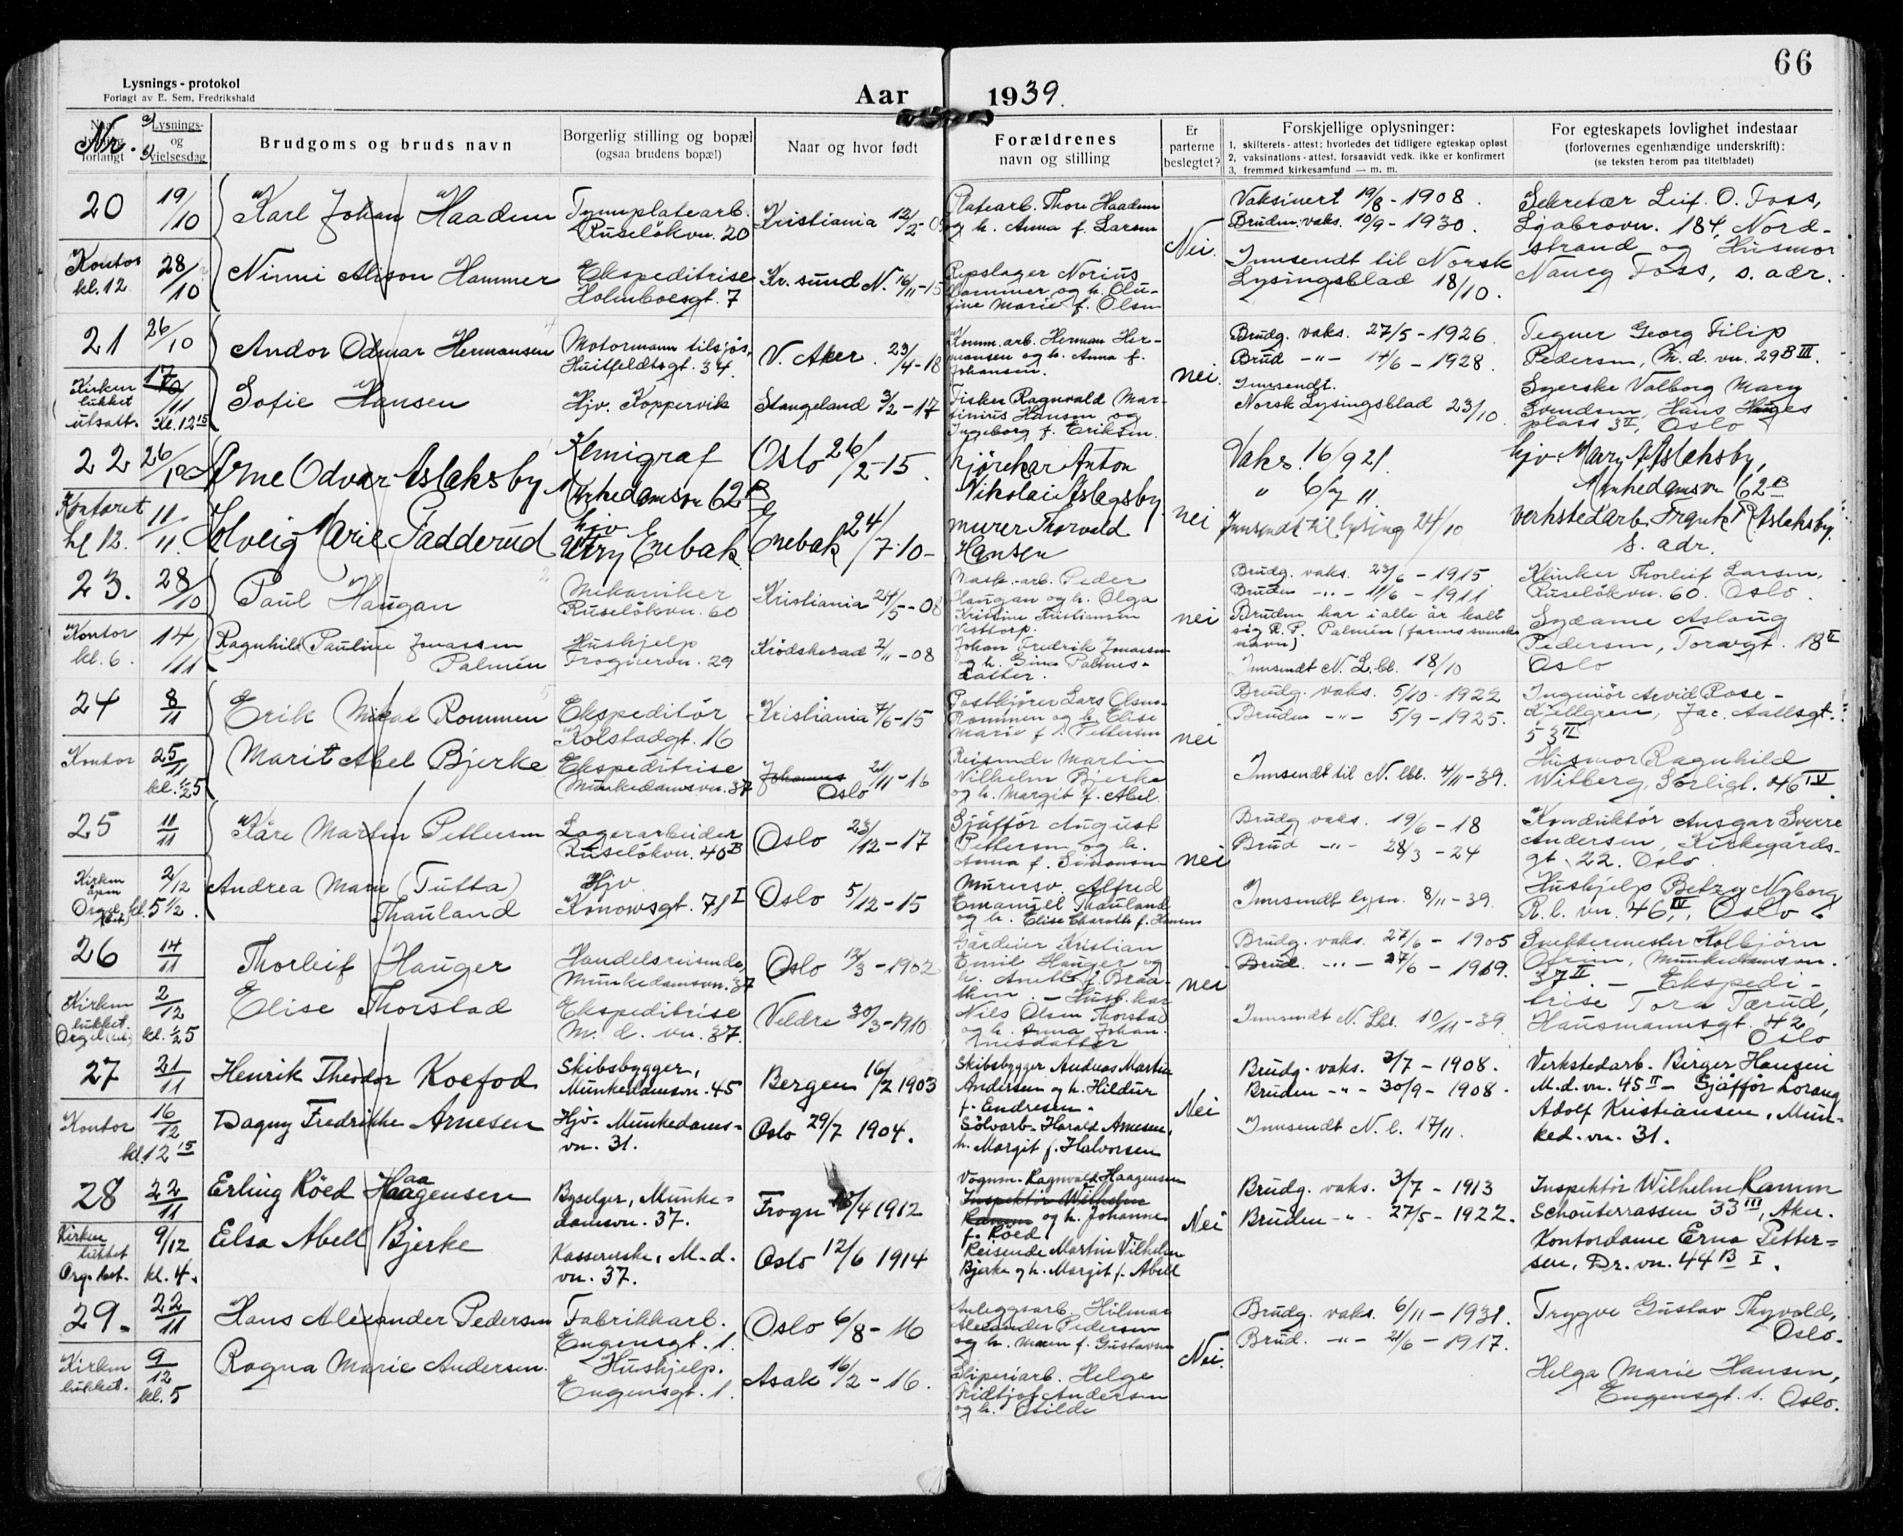 66
Lysnings-protokol
Forlagt av E. Sem, Fredrikshald
Aar 1939.
Nr.
Lysnings- og vielsesdag
Brudgoms og bruds navn
Borgerlig stilling og bopæl
(ogsaa brudens bopæl)
Naar og hvor født
Forældrenes
navn og stilling
Er parterne beslegtet?
Forskjellige oplysninger:
1. skilterets-attest: hvorledes det tidligere egteskap opløst
2. vaksinations-attest, forsaavidt vedk. ikke er konfirmert
3. fremmed kirkesamfund — m. m.
For egteskapets lovlighet indestaar
(forlovernes egenhændige underskrift):
(se teksten herom paa titelbladet)
20 19/10 Karl Johan Haadem
Tynnplatearb.
Ruseløkvn. 20
Kristiania 12/2-09
Platearb. Thore Haadem
og h. Anna f. Larsen
Nei
Vaksinert 19/8 - 1908.
Bruden vaks. 10/9 - 1930.
Innsendt til Norsk
Lysingsblad 18/10.
Sekretær Leif O. Foss,
Ljabrovn. 184, Nord-
strand og Husmor
Nancy Foss, s. adr.
Kontor kl. 12 28/10 Ninni Alison Hammer
Ekspeditrise
Holmboesgt. 7
Kr. sund N. 16/11-15
Repslager Norius
Hammer og h. Olu-
fine Marie f. Olsen
21 26/10 Andor Odmar Hermansen
Motormann tilsjøs,
Huitfeldtsgt. 34.
V. Aker. 23/4-18
Komm.arb. Herman Her-
mansen og h. Anna f.
Johansen.
nei.
Brudg. vaks. 27/5 - 1926.
Brud -"- 14/6 - 1928.
Innsendt.
Norsk Lysingsblad 23/10.
Tegner Georg Filip
Pedersen, M. d. vn. 29B III.
Syerske Valborg Mary
Svendsen, Hans Hauges
plass 3 II, Oslo
Kirken lukket utsatt. 17/11 Kl. 12 15 Sofie Hansen
Hjv. Koppervik
Stangeland 3/2-17
Fisker Ragnvald Mar-
tinius Hansen og
Ingeborg f. Eriksen.
22 26/10 Arne Odvar Aslaksby
Kemigraf
Munkedamsvn 62 B
Oslo 26/2-15.
Kjørekar Anton
Nikolai Aslagsby.
nei
Vaks. 16/9 21.
" 6/7 11.
Innsendt til lysing 24/10
hjv. Mary Aslaksby,
Munkedamsvn 62 B
Verkstedarb. Frank R. Aslaksby.
s. adr.
Kontoret kl 12. 11/11. Solveig Marie Gadderud
hjv
Ytry Enebak
Enebak 24/7-10-
murer Thorvald
Hansen
23. 28/10 Paul Haugan
Mekaniker
Ruseløkvn. 60
Kristiania 24/5-08
Mask.-arb. Peder
Haugan og h. Olga
Kristine Kristiansen
nei
Brudg. vaks. 23/6 - 1915
Bruden -"- 11/6 - 1911
Bruden har i alle år kalt
sig R. P. Palmén (farens svenske
navn)
Innsendt N. L. bl. 18/10
Klinker Thorleif Larsen,
Ruseløkvn. 60. Oslo.
Sydame Aslaug
Pedersen, Torvgt. 18 II
Oslo
Kontor kl. 6. 14/11 Ragnhild Pauline Jonassen
Palmén
Hushjelp
Frognervn. 29
Krødsherad 2/11-08
Johan Fredrik Jonassen
og h. Gina Palmes-
datter.
24 8/11 Erik Mikal Rommen
Ekspeditør
Kolstadgt. 16
Kristiania 7/6-15
Postkjører Lars Olsen-
Rommen og h. Elise
Marie f. Pettersen
nei
Brudg. vaks. 5/10 - 1922
Bruden -"- 5/9 - 1925.
Innsendt til N. lbl. 4/11-39.
Ingeniør Arvid Rose-
Kjellgren, Jac. Aallsgt.
53 II
Husmor Ragnhild
Witberg, Sorligt. 46 IV.
Kontor 25/11 kl. 1/2 5 Marit Abel Bjerke
Ekspeditrise
Munkedamsvn. 37
Oslo 21/11-16
Reisende Martin
Vilhelm Bjerke
og h. Margit f. Abel.
25 11/11 Kåre Martin Pettersen
Lagerarbeider
Ruseløkvn. 40 B
Oslo 23/12-17
Sjåffør August
Pettersen og h.
Anna f. Simonsen
nei
Brudg. vaks. 19/6 - 18
Brud -"- 28/3 - 24
Innsendt lysn. 8/11-39.
Konduktør Ansgar Sverre
Andersen, Kirkegårds-
gt. 22. Oslo.
Hushjelp Betzy Nyborg
R. l. vn. 46 IV, Oslo.
Kirken åpen Orgel 2/12 kl. 5 1/2. Andrea Marie (Tutta)
Thauland
Hjv.
Konowsgt. 71 I
Oslo 5/12-15
Murersv. Alfred
Emanuel Thauland
og h. Elise Charotte f. Hansen
26 14/11 Thorleif Hauger
Handelsreisende
Munkedamsvn. 37
Oslo 12/3-1902
Gårdeier Kristian
Emil Hauger og
h. Anette f. Braa-
then.
nei
Brudg. vaks. 27/6 - 1905
Brud. -"- 27/6 - 1919.
Innsendt N. Lbl. 10/11-39.
Snekkermester Kolbjørn
Munkedamsvn.
37 II. - Ekspedi-
trise Tora Tærud,
Hausmannsgt. 42
Oslo
Kirken lukket. Orgel 2/12 kl. 1/2 5 Elise Thorstad
Ekspeditrise
M. d. vn. 37.
Veldre 30/3-1910
Nils Olsen Thorstad
og h. Anna Johan-
nesdatter
27 21/11 Henrik Theodor Koefod
Skibsbygger,
Munkedamsvn. 45
Bergen 16/2 1903
Skibsbygger Andreas Martin
Andersen og h. Hildur
f. Endresen.
Nei
Brudg. vaks. 3/7 - 1908.
Bruden -"- 30/9 - 1908.
Innsendt N. l. 17/11.
Verkstedarb. Birger Hansen
M. d. vn. 45 II - Sjåffør
Adolf Kristiansen, Mun-
ked. vn. 31.
Kontor 16/12 kl. 12 15 Dagny Fredrikke Arnesen
Hjv. Munkedams-
vn. 31.
Oslo 29/7 1904.
Sølvarb. Harald Arnesen,
h. Margit f. Halvorsen
28 22/11 Erling Røed Haagensen
Byselger, Munke-
damsvn. 37.
Frogn 13/4 1912
Vognm. Ragnvald Haagensen
Inspektør Wilhelm
Ramm og h. Johanne
f. Røed
Nei
Brudg. vaks. 3/7 - 1913
Bruden -"- 27/5 - 1922.
Inspektør Wilhelm Ramm
Schouterrassen 33 III, Aker.
Kontordame Erna Petter-
sen, Dr. vn. 44 B I.
Kirken lukket Org. 9/12 kl. 4. Elsa Abell Bjerke
Kassererske, M. d.
vn. 37.
Oslo 12/6 1914
Reisende Martin Vilhelm
Bjerke og h. Margit f. Abell
29. 22/11 Hans Alexander Pedersen
Fabrikkarb.
Engensgt. 1.
Oslo 6/8-16
Anleggsarb. Hilmar
Alexander Pedersen
og h. Maren f. Gustavsen
Nei.
Brudg. vaks. 6/11 - 1931.
Brud. -"- 21/6 - 1917.
Trygve Gustav Thyvold,
Oslo.
Helga Marie Hansen,
Engensgt. 1. Oslo.
Kirken lukket. 9/12 kl. 5 Ragna Marie Andersen.
Hushjelp.
Engensgt. 1.
Asak 16/2-16.
Sliperiarb. Helge
Andersen
og h. Otilde